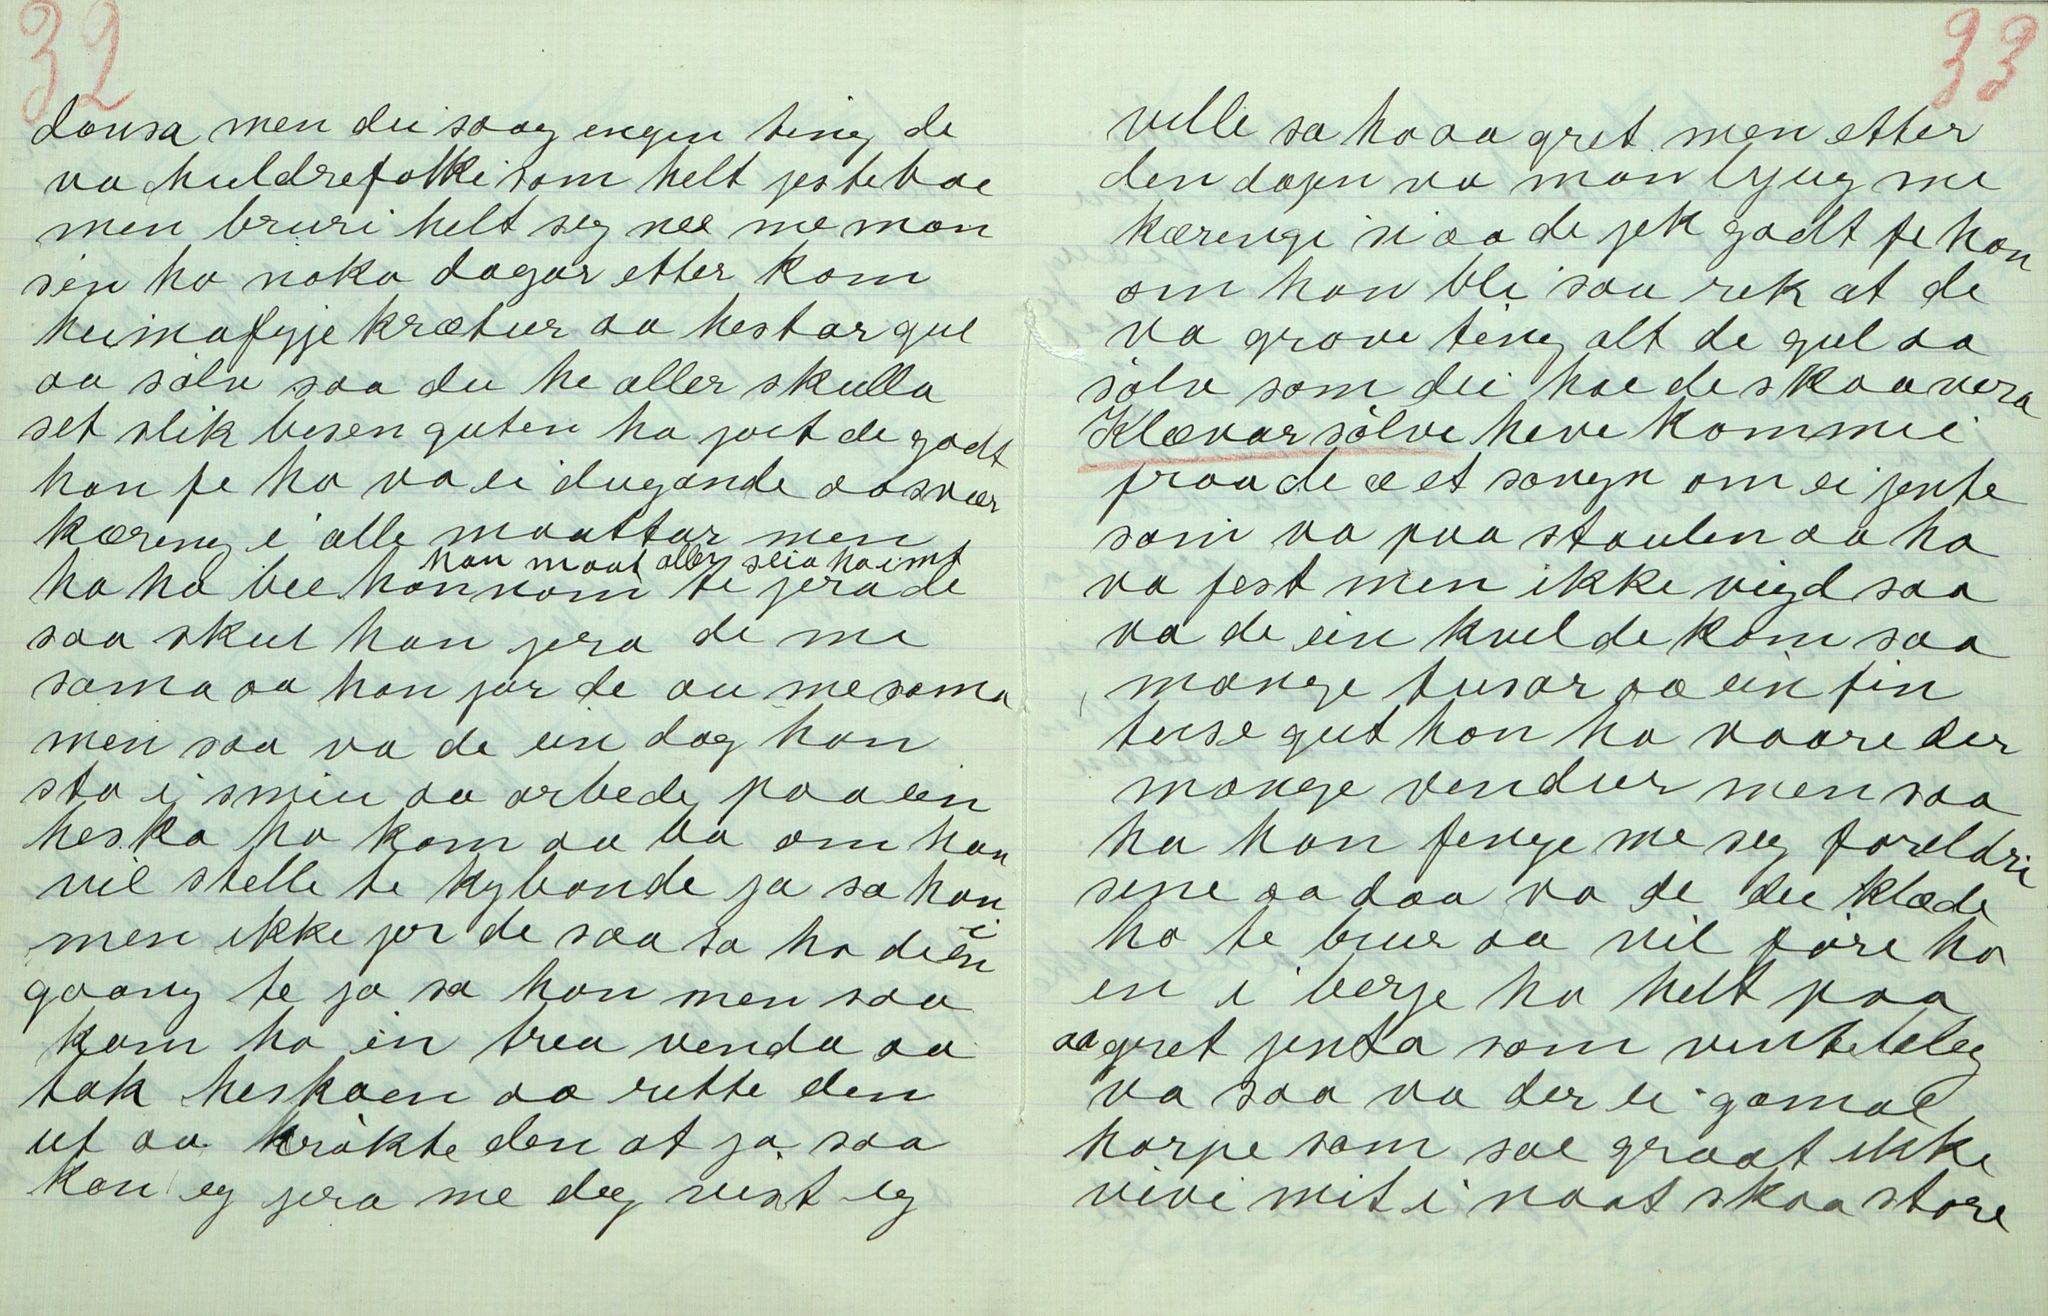 32
dansa men dei saag engen ting de
va huldrefolki som helt jestebae
men bruri helt seg nee me man
sin ha noka dagar etter kom
heimafyje krætur aa hestar gul
aa sölv saa du he aller skulla
set slik besen guten ha joet de godt
han fe ha va ei dugande aa svær
kæreng i alle maattar men
han maat aller seia ha imt
ha ha bee hannom te jera de
saa skul han jera de me
sama aa han jor de au me sama
men saa va de ein dag han
sto i smiu aa arbede paa ein
heska ha kom aa ba om han
vil stelle te kybonde ja sa han
men ikke jor de saa sa ha de i ein
gaang te ja sa han men saa
kom ha in trea venda aa
tok heskoen aa rette den
ut aa krökte den at ja saa
kan eg jera me deg vist eg
33
ville sa ha aa gret men etter
den dagen va man bljug me
kærenge si aa de jek godt fe han
om han bli saa rik at de
va grove ting alt de gul aa
sölv som dei hae de skaa vera
Klævar sölve heve kommie
fraa de æ et sangn om ei jente
som va paa staulen aa ha
va fest men ikke vigd saa
va de ein kveld de kom saa
mange tusar aa ein fin
tusegut han ha vaare der
mange vendur men saa
ha han fenge me seg foreldri
sene aa daa va de dei klæde
ha te brur aa vil före ha
en i berje ha helt paa
aa gret jenta som ventele leg
va saa va der ei gamal
harpe som sae graat ikke
vivi mit i naat skaa store